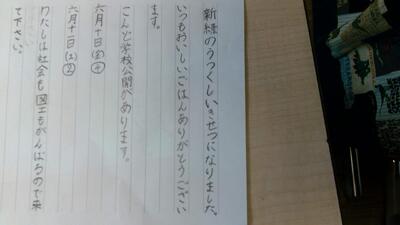 新緑のうつくしいきせつになりました。
いつもおいしいごはんありがとうござい
ます。
こんど学校公開があります。
六月十日(金)④
六月十一日(土)②
わたしは社会も図工もがんばるので来
て下さい。